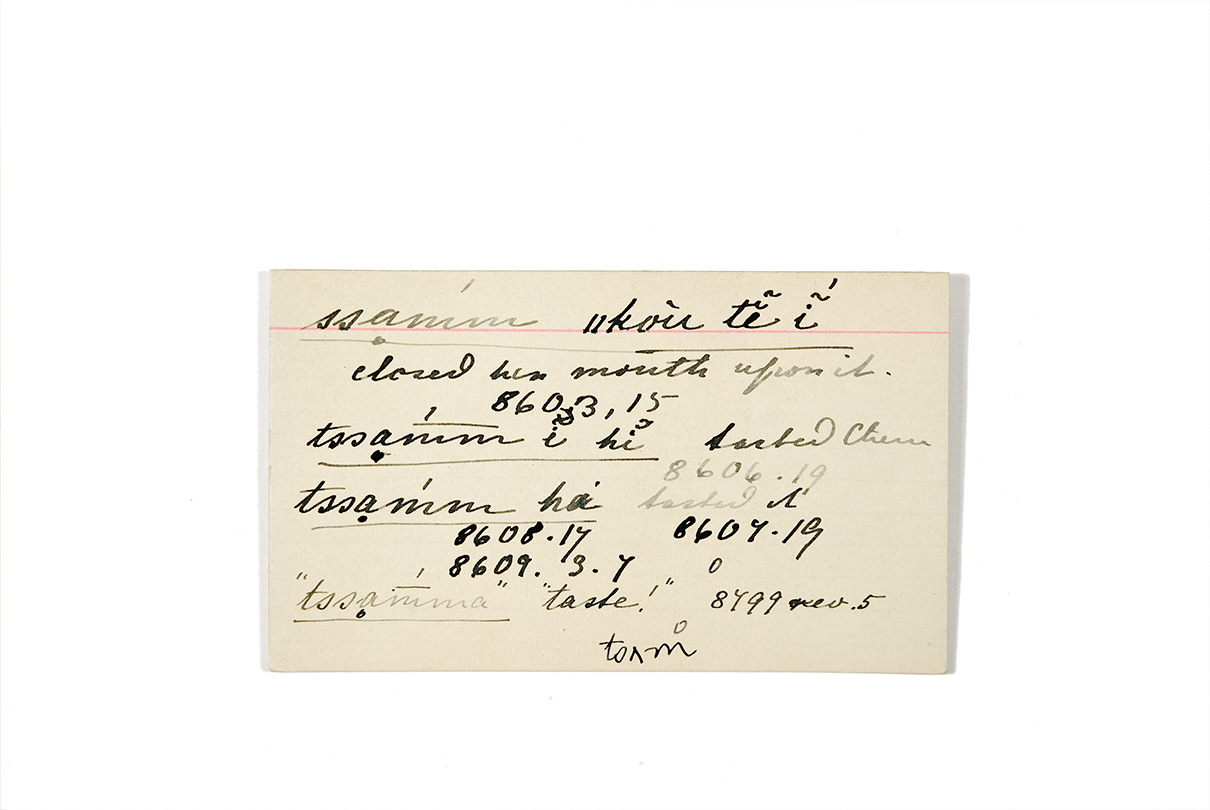 ssạm̄́m ‖kòu tẽ ĩ́
closed her mouth upon it.
8603, 15
tssạm̄́m ĩ hĩ tasted them
8606.19
tssạḿm há tasted it
8608.17 8607.19
8609. 3. 7
"tssạm̄́ma" "taste!" 8499 rev. 5